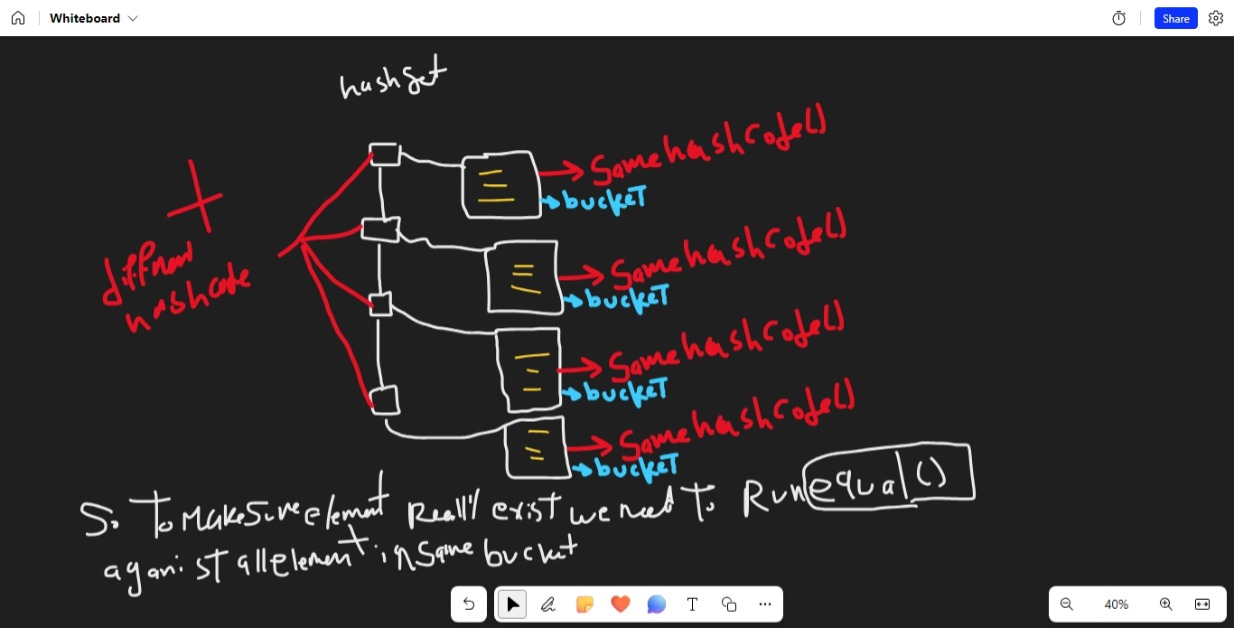 Whiteboard
Share
hashset
Same hashCode()
bucket
Same hashCode()
bucket
different
hashcode
Same hashCode()
bucket
Same hashCode()
bucket
So To Make Sure element Reall'l exist we need To Run equal()
aganist all element in same bucket
T
40%